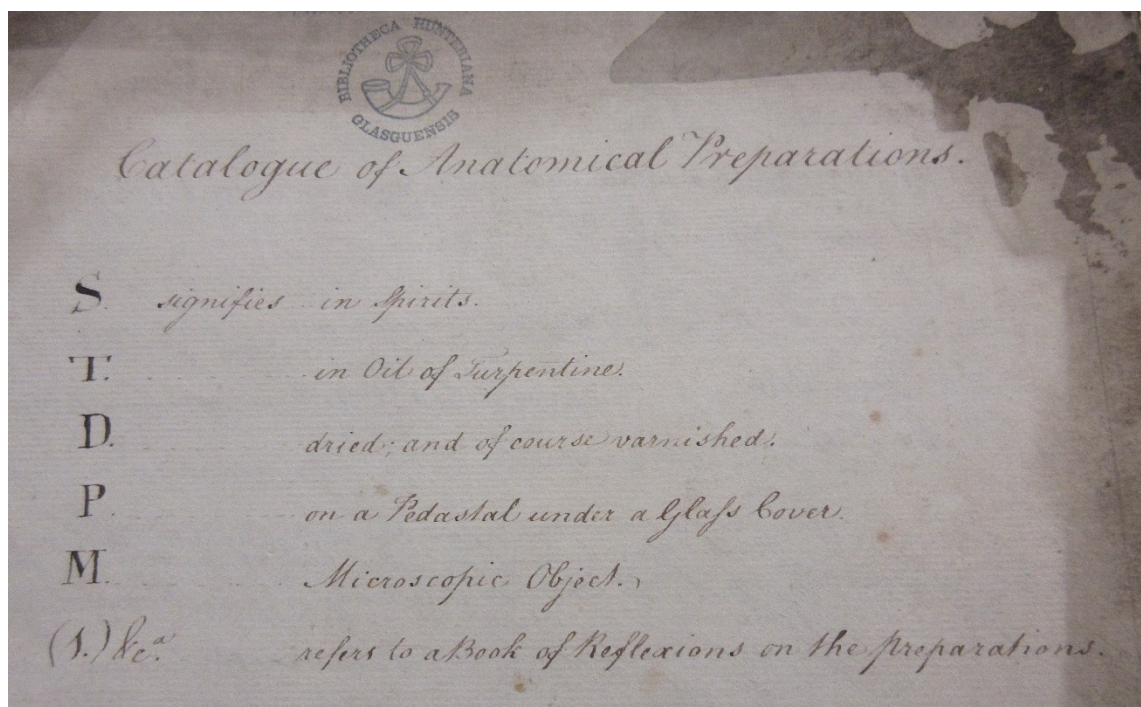 BIBLIOTHECA HUNTERIANA
GLASGUENSIS
Catalogue of Anatomical Preparations.
S. signifies in Spirits.
T. in Oil of Turpentine.
D. dried; and of course varnished.
P. on a Pedastal under a Glaſs Cover.
M. Microscopic Object.
(1.) &c.ª refers to a Book of Reflexions on the preparations.